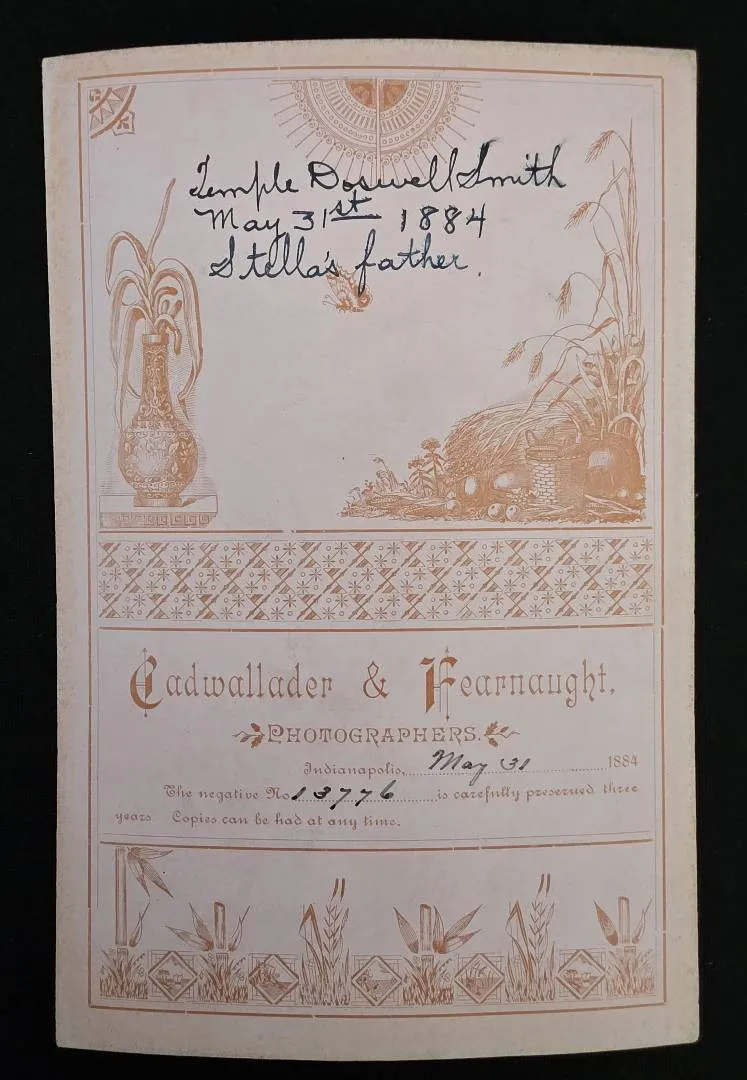 Temple Doswell Smith
May 31st 1884
Stella's father.
Cadwallader & Fearnaught.
PHOTOGRAPHERS.
Indianapolis, May 31 1884
The negative No 13776 is carefully preserved three
years. Copies can be had at any time.